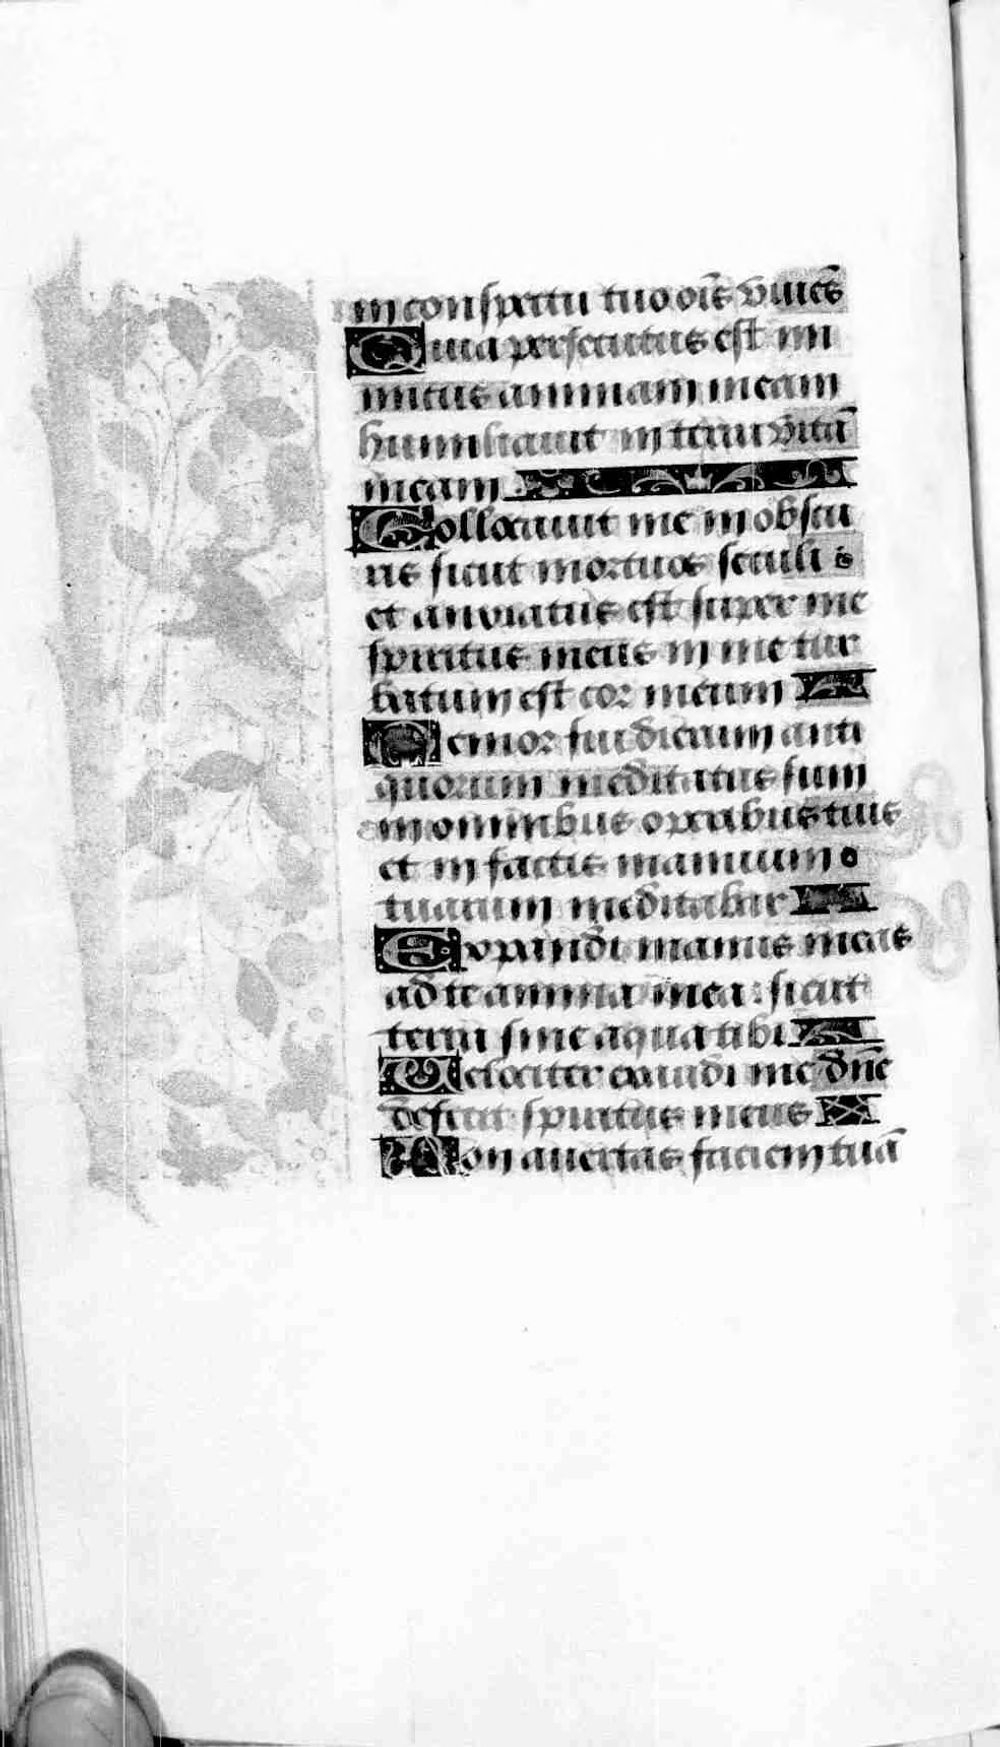 in conspectu tuo oĩs viuẽs
Quia persecutus est ini
micus animam meam
humiliauit in terra vitã
meam
Collocauit me in obscu
ris sicut mortuos seculi
et anxiatus est super me
spiritus meus in me tur
batum est cor meum
Memor fui dierum anti
quorum meditatus sum
in omnibus operibus tuis
et in factis manuum
tuarum meditabar
Expandi manus meas
ad te anima mea : sicut
terra sine aqua tibi
Velociter exaudi me dñe
defecit spiritus meus
Non auertas faciem tuã